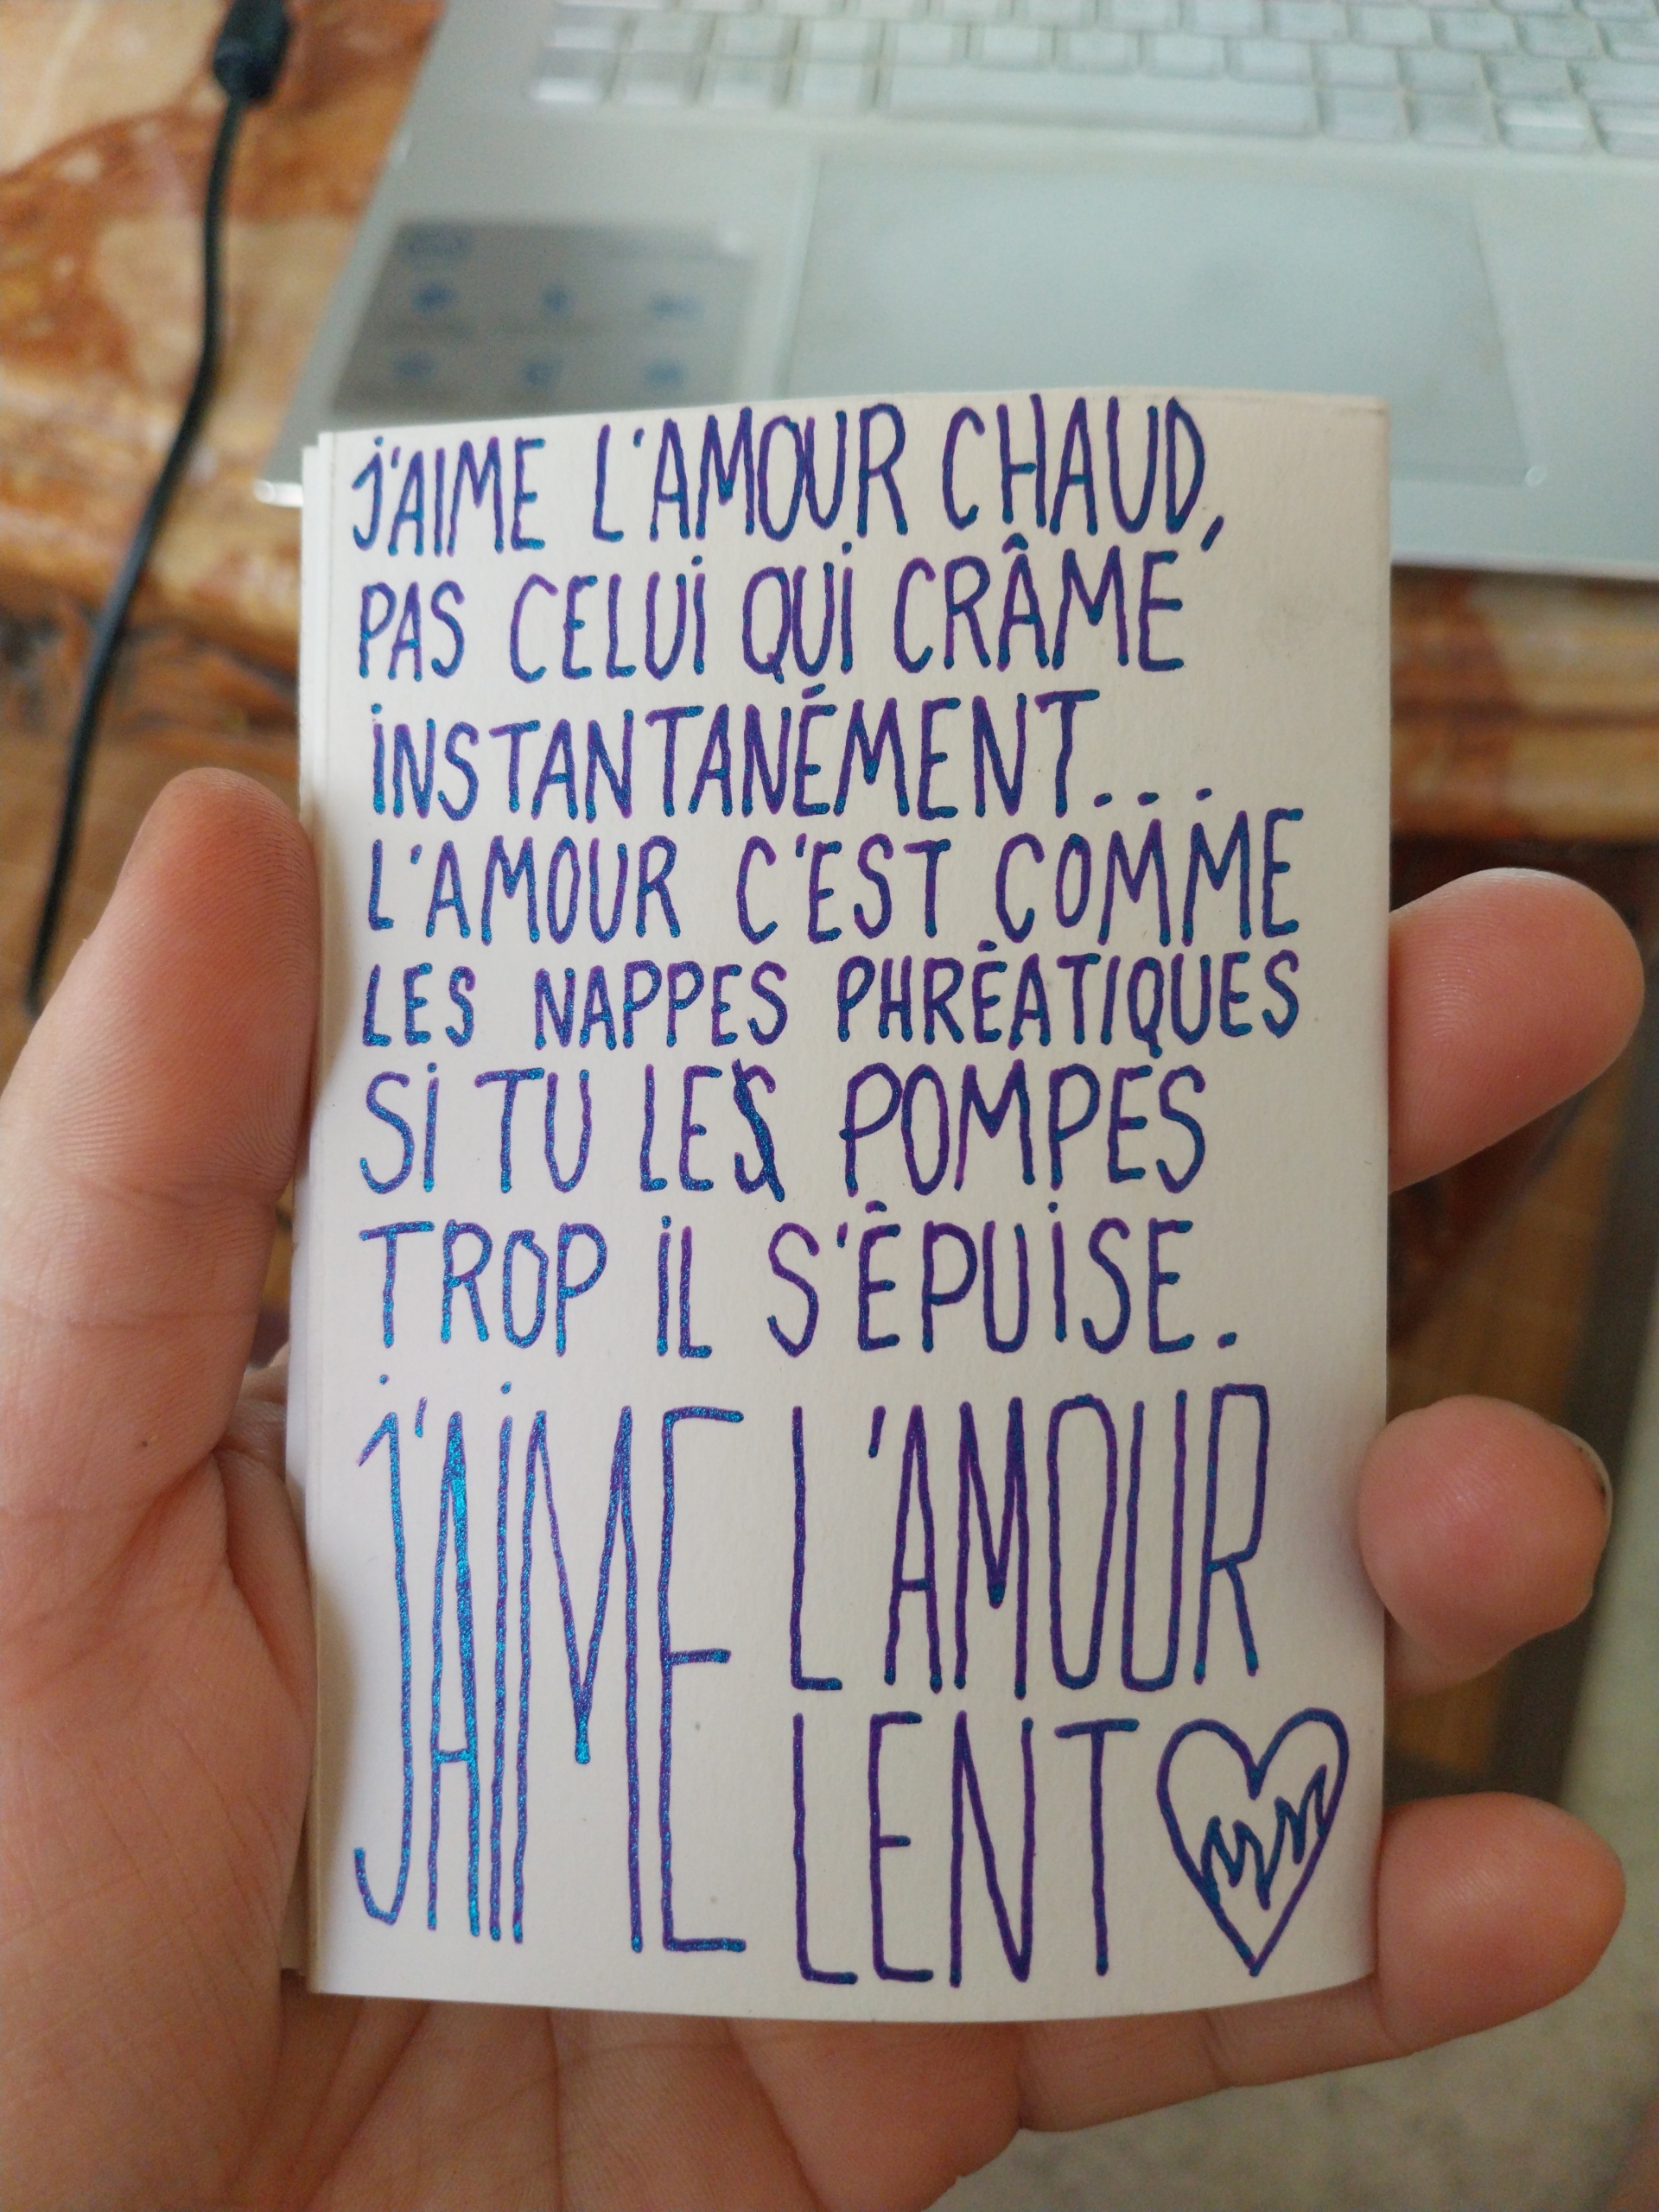 J'AIME L'AMOUR CHAUD,
PAS CELUI QUI CRÂME
INSTANTANÉMENT...
L'AMOUR C'EST COMME
LES NAPPES PHRÉATIQUES
SI TU LES POMPES
TROP IL S'ÉPUISE.
J'AIME L'AMOUR
LENT